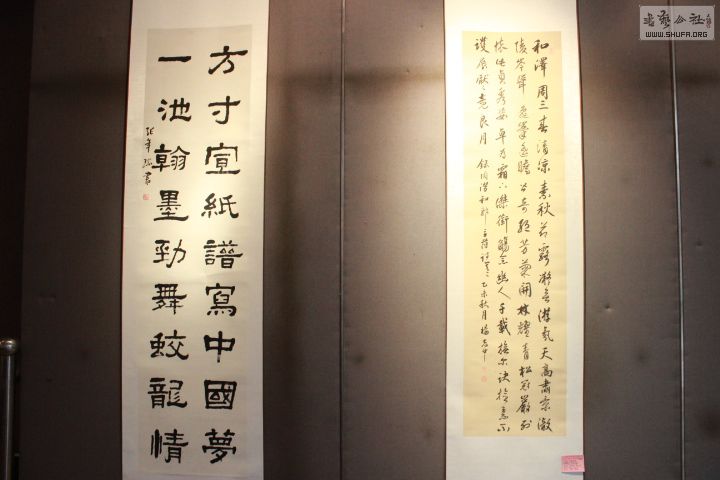 和澤周三春清凉素秋節露凝無游氛天高肅景澈
陵岑聳逸峯遙瞻皆奇絕芳菊開林耀青松冠巖列
懷此貞秀姿卓為霜下傑銜觴念幽人千載撫爾訣檢素不
獲展厭厭竟良月 和郭主簿詩之二乙未秋月楊
方寸宣紙譜寫中國夢
一池翰墨勁舞蛟龍情
張 書
書藝公社
WWW.SHUFA.ORG